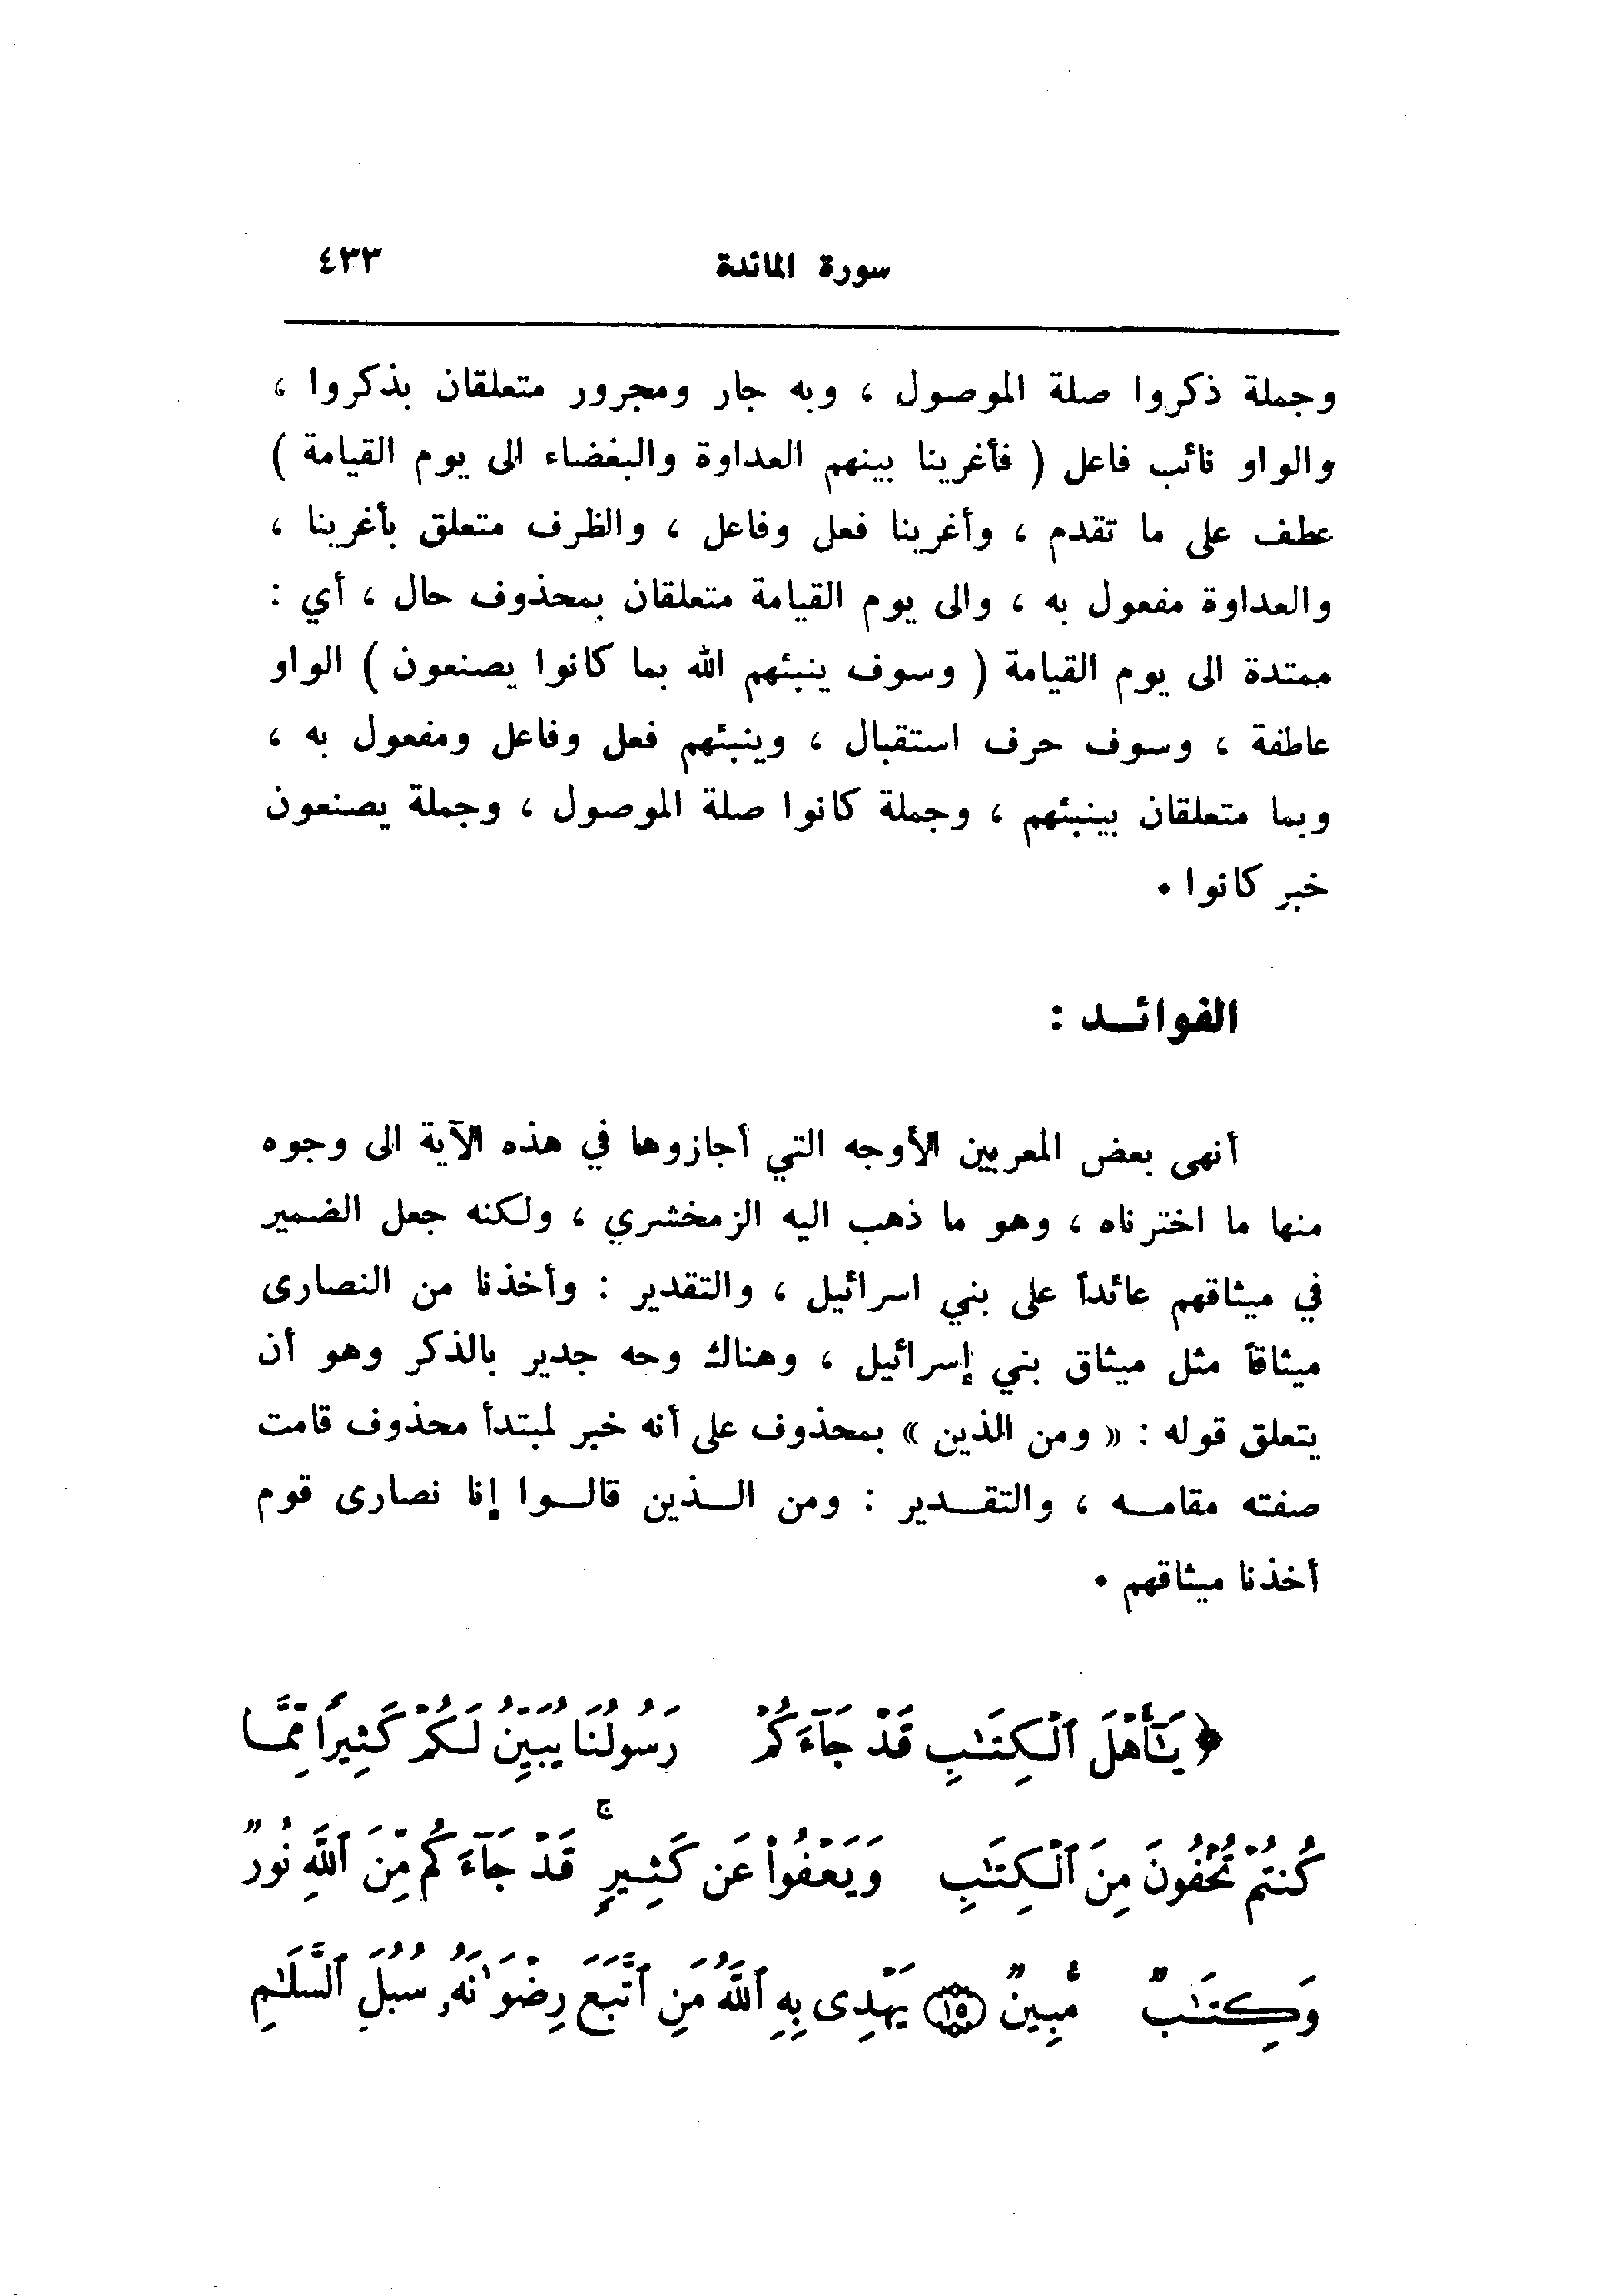 سورة المائدة ٤٣٣
وجملة ذكروا صلة الموصول ، وبه جار ومجرور متعلقان بذكروا ،
والواو نائب فاعل ( فأغرينا بينهم العداوة والبغضاء الى يوم القيامة )
عطف على ما تقدم ، وأغرينا فعل وفاعل ، والظرف متعلق بأغرينا ،
والعداوة مفعول به ، والى يوم القيامة متعلقان بمحذوف حال ، أي :
ممتدة الى يوم القيامة ( وسوف ينبئهم الله بما كانوا يصنعون ) الواو
عاطفة ، وسوف حرف استقبال ، وينبئهم فعل وفاعل ومفعول به ،
وبما متعلقان بينبئهم ، وجملة كانوا صلة الموصول ، وجملة يصنعون
خبر كانوا .
الفوائـد :
أنهى بعض المعربين الأوجه التي أجازوها في هذه الآية الى وجوه
منها ما اخترناه ، وهو ما ذهب اليه الزمخشري ، ولكنه جعل الضمير
في ميثاقهم عائداً على بني اسرائيل ، والتقدير : وأخذنا من النصارى
ميثاقاً مثل ميثاق بني إسرائيل ، وهناك وحه جدير بالذكر وهو أن
يتعلق قوله : « ومن الذين » بمحذوف على أنه خبر لمبتدأ محذوف قامت
صفته مقامـه ، والتقـدير : ومن الـذين قالـوا إنا نصارى قوم
أخذنا ميثاقهم .
﴿ يَـٰٓأَهْلَ ٱلْكِتَـٰبِ قَدْ جَآءَكُمْ رَسُولُنَا يُبَيِّنُ لَكُمْ كَثِيرًا مِّمَّا
كُنتُمْ تُخْفُونَ مِنَ ٱلْكِتَـٰبِ وَيَعْفُوا۟ عَن كَثِيرٍ ۚ قَدْ جَآءَكُم مِّنَ ٱللَّهِ نُورٌ
وَكِتَـٰبٌ مُّبِينٌ ﴿١٥﴾ يَهْدِى بِهِ ٱللَّهُ مَنِ ٱتَّبَعَ رِضْوَٰنَهُۥ سُبُلَ ٱلسَّلَـٰمِ